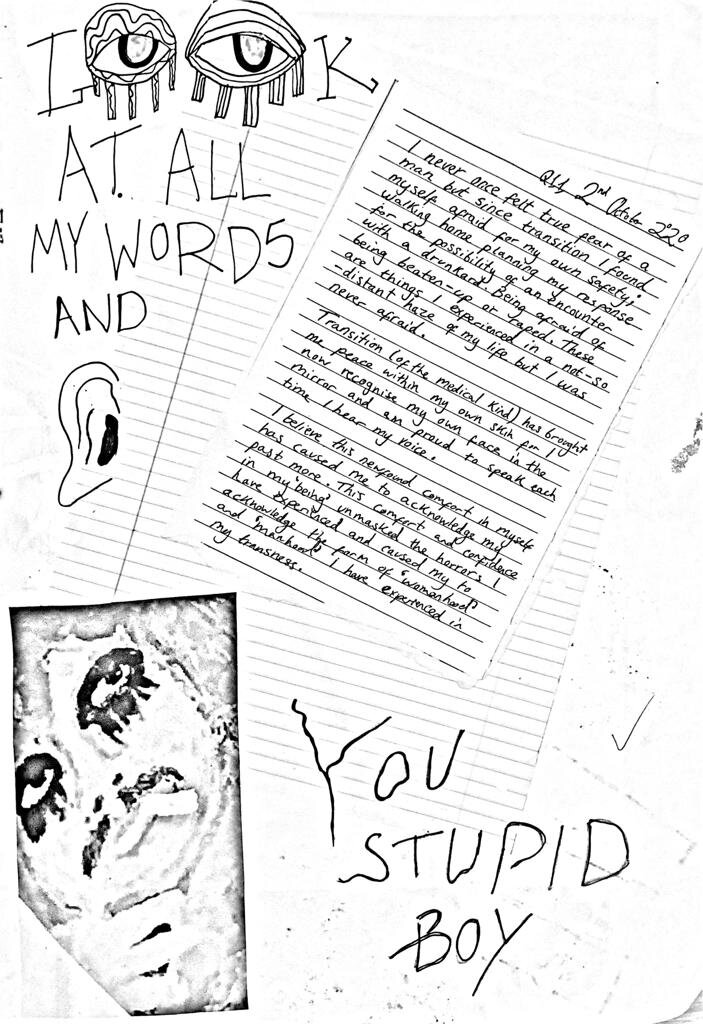 LOOK
AT. ALL
MY WORDS
AND
2nd October 2020
I never once felt true fear of a
man but since transition I found
myself afraid for my own safety;
walking home planning my response
for the possibility of an encounter
with a drunkard. Being afraid of
being beaten-up or raped. These
are things I experienced in a not-so
-distant haze of my life but I was
never afraid.
Transition (of the medical kind) has brought
me peace within my own skin for I
now recognise my own face in the
mirror and am proud to speak each
time I hear my voice.
I believe this newfound comfort in myself
has caused me to acknowledge my
past more. This comfort and confidence
in my 'being' unmasked the horrors I
have experienced and caused my to
acknowledge the form of 'womanhood'
and 'manhood' I have experienced in
my transness.
YOU
STUPID
BOY